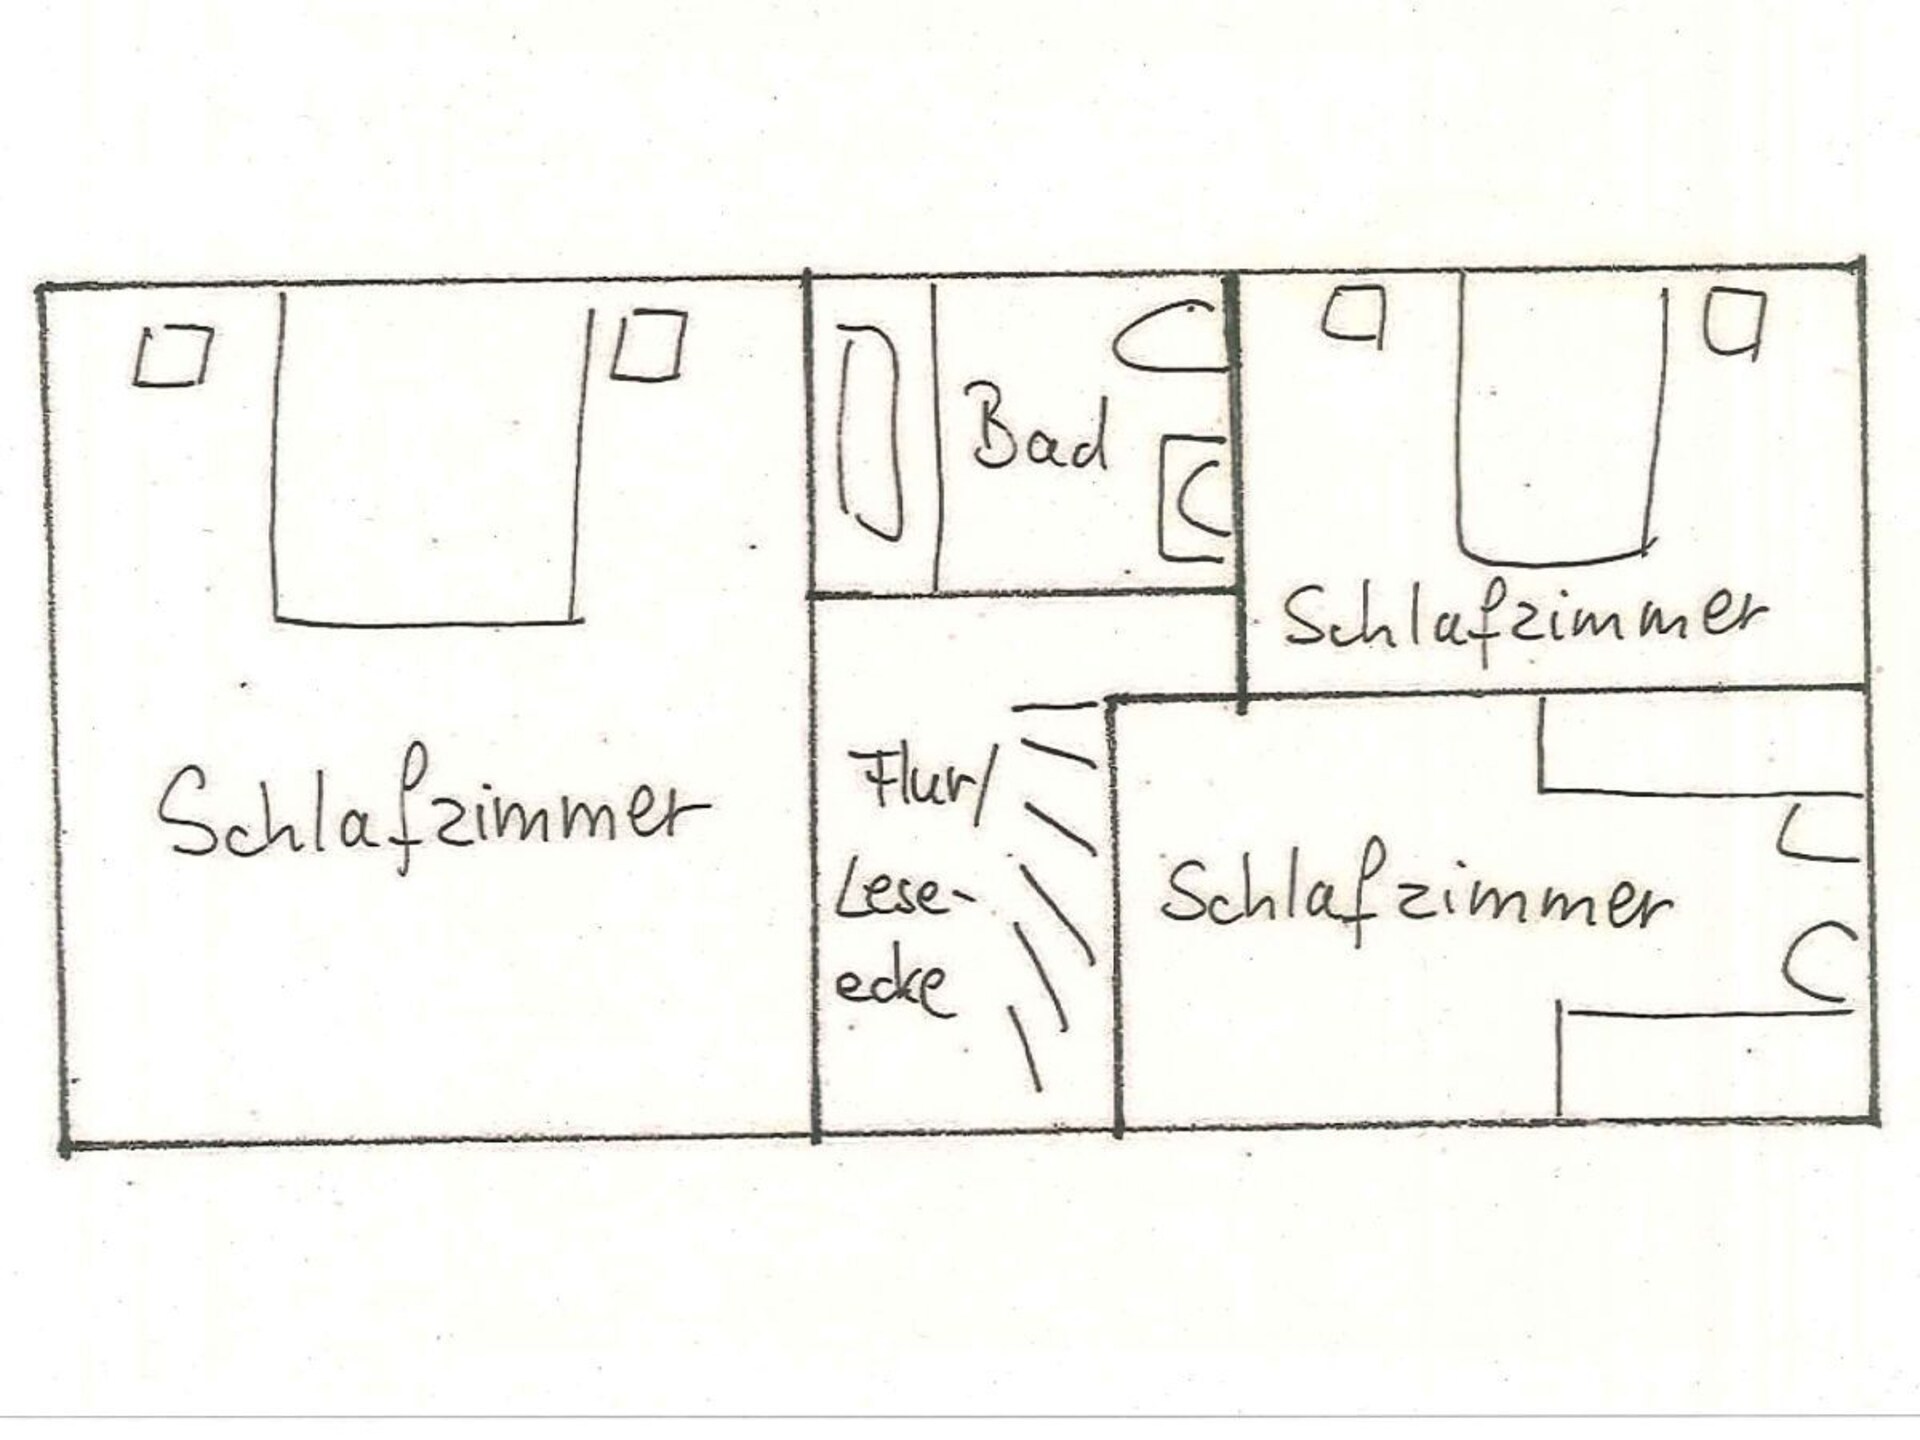 Bad
Schlafzimmer
Schlafzimmer
Flur/
Lese-
ecke
Schlafzimmer